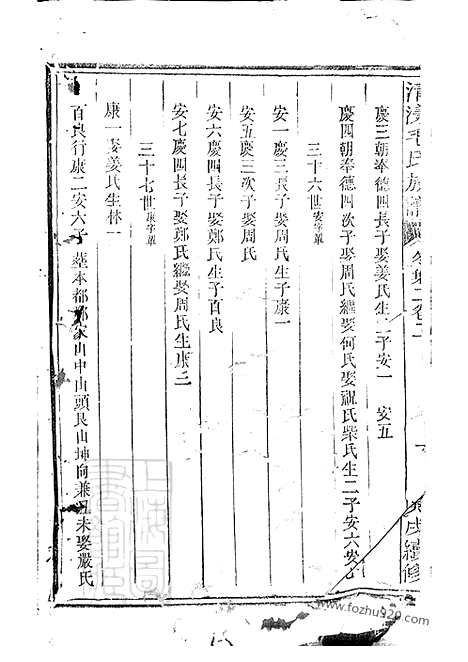 清漾毛氏族譜
冬集二卷二
戊續修
慶三朝奉德四長子娶姜氏生二子安一　安五
慶四朝奉德四次子娶周氏繼娶何氏娶祝氏柴氏生二子安六安七
三十六世安字單
安一慶三長子娶周氏生子康一
安五慶三次子娶周氏
安六慶四長子娶鄭氏生子百良
安七慶四長子娶鄭氏繼娶周氏生康三
三十七世康字單
康一娶姜氏生林一
百良行康二安六子塟本都鄭家山中山頭艮山坤向兼丑未娶嚴氏
www.fozhu920.com